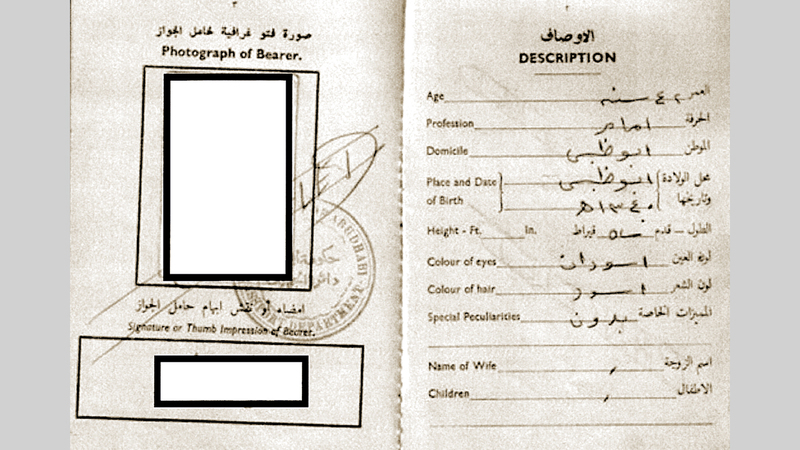 ٣
صورة فتو غرافية لحامل الجواز
Photograph of Bearer.
ABUDHABI
DEPARTMENT
امضاء أو نقش ابهام حامل الجواز
Signature or Thumb Impression of Bearer.
الاوصاف
DESCRIPTION
Age ٤٢ سنه العمر
Profession امام الحرفة
Domicile ابوظبي الموطن
Place and Date ابوظبي محل الولادة
of Birth ١٣٤٠ه وتاريخها
Height - Ft. In. قيراط الطول - قدم
Colour of eyes اسودان لون العين
Colour of hair اسود لون الشعر
Special Peculiarities بدون المميزات الخاصة
Name of Wife اسم الزوجة
Children الاطفال